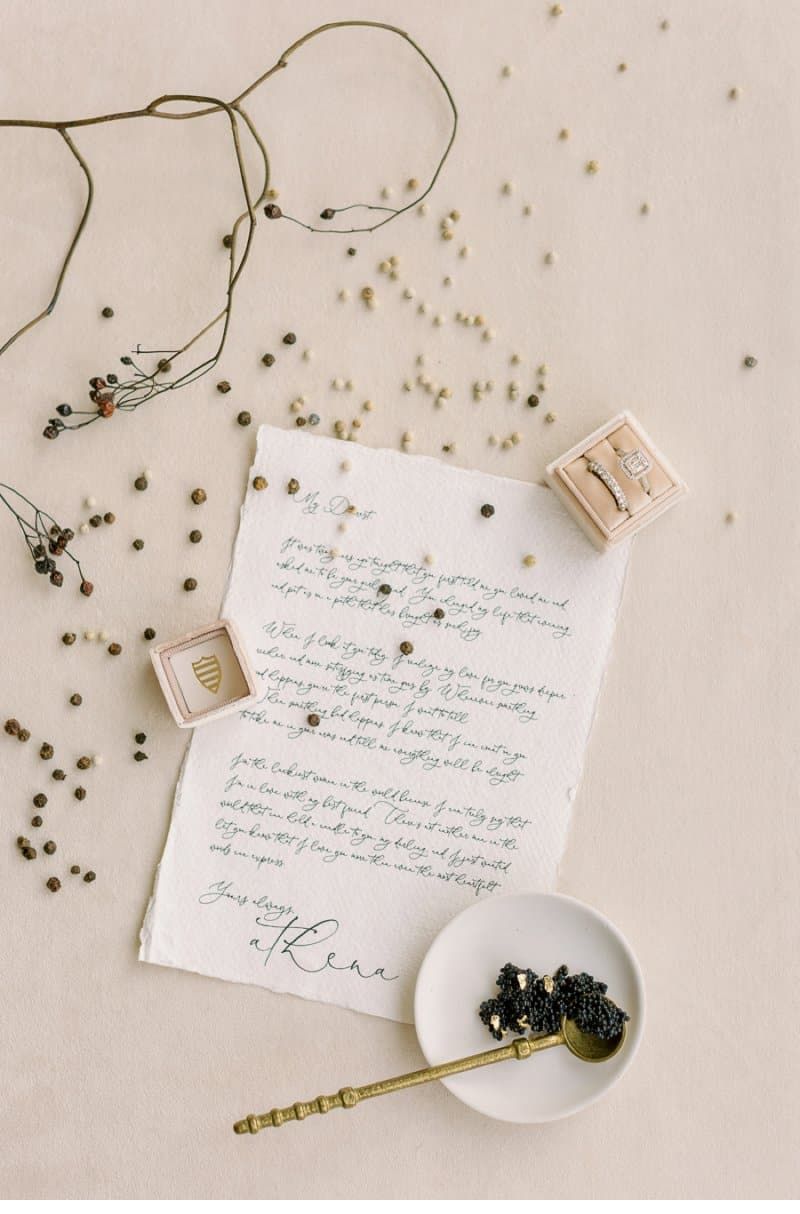 My Dearest,
It was two years ago tonight that you first told me you loved me and
asked me to be your girlfriend. You changed my life that evening
and put us on a path that has brought us
When I look at you today, I realize my love for you grows deeper,
richer and more satisfying as time goes by. Whenever something
happens, you're the first person I want to tell.
When something bad happens, I know that I can count on you
to take me in your arms and tell me everything will be alright.
I'm the luckiest woman in the world because I can truly say that
I'm in love with my best friend. There's not another man in the
world that can hold a candle to you, my darling, and I just wanted
let you know that I love you more than even the most heartfelt
words can express.
Yours always,
athena